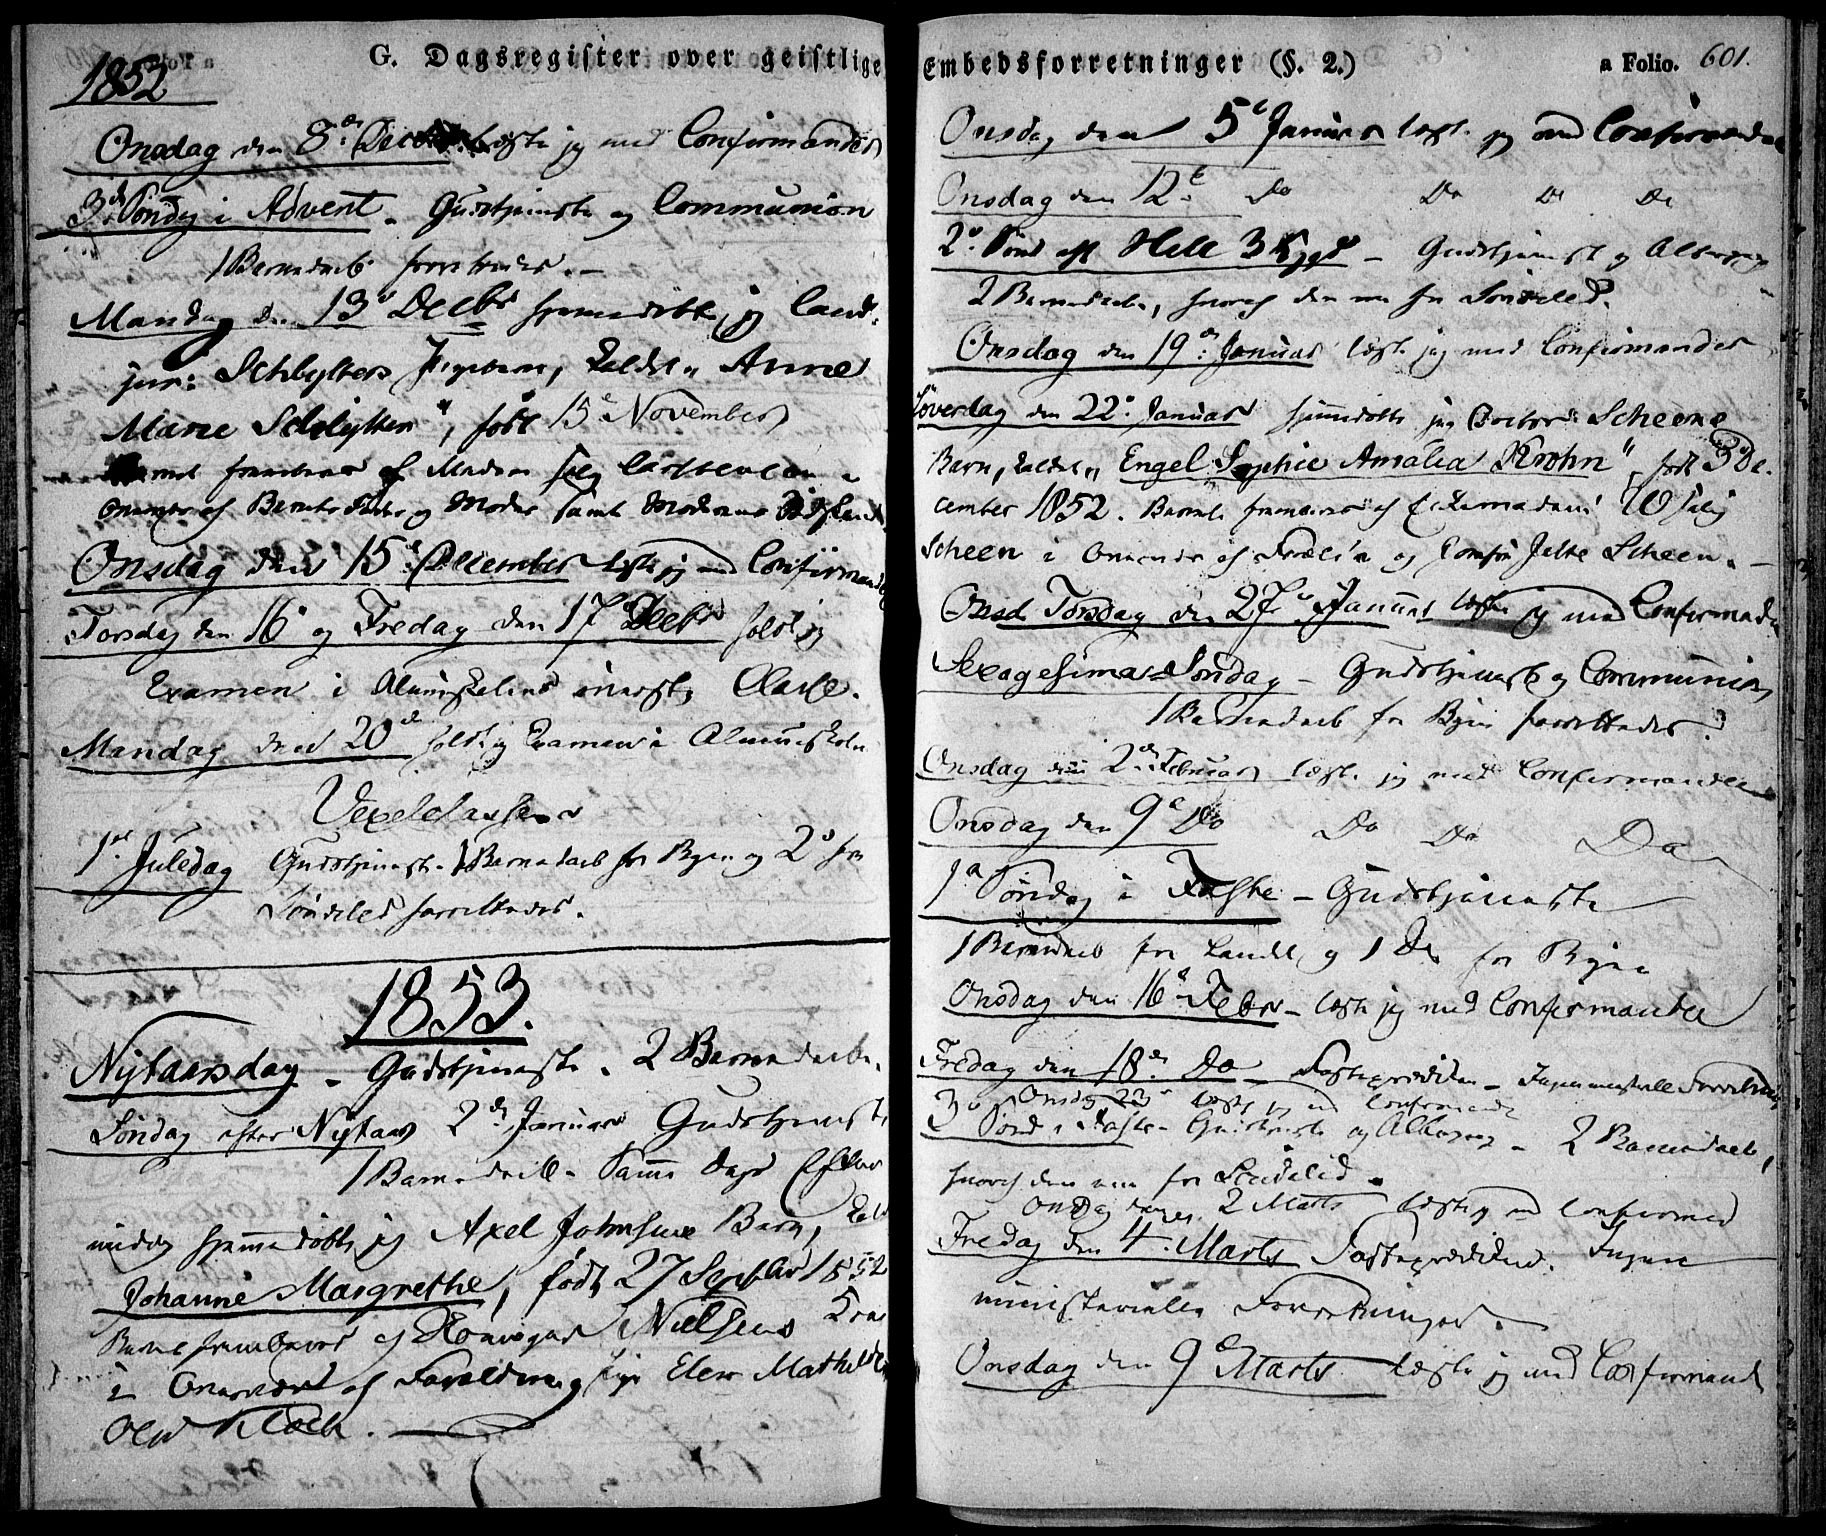 G. Dagsregister over geistlige
1852
Onsdag den 8de Decbr. læste jeg med Confirmander
3de Søndag i Advent. Gudstjeneste og Communion
1 Barnedaab forrettedes. —
Mandag den 13de Decbr hjemmedøbte jeg Cand.
jur: Schlytters Pigebarn, kaldet „Anne
Marie Schlytter", født 15de November
Barnet frembaaret af Madam
Onsdag den 15de December læste jeg med Confirmander
Torsdag den 16de og Fredag den 17de Decbr holdt jeg
Examen i Almueskolens Classe.
Mandag den 20de holdt jeg Examen i Almueskolen
Vexelclassen
1ste Juledag Gudstjeneste. 1 Barnedaab for Byen og 2de for
Søndeled forrettedes.
1853.
Nytaarsdag. Gudstjeneste. 2 Barnedaabe.
Søndag efter Nytaar 2den Januar Gudstjeneste
1 Barnedaab. Samme Dags Efter
middag hjemmedøbte jeg Axel Johnsens Barn, kaldt
Johanne Margrethe, født 27 Septbr 1852
Barnet frembaaret af Nielsens Kone
i Overvær af Forældrene og Pige Elen Mathilde
Olsd Kloch.
Embedsforretninger (§. 2.) a Folio. 601.
Onsdag den 5te Januar læste jeg med Confirmander
Onsdag den 12te Do Do Do Do
2den Sønd eft Hell 3 Kgr — Gudstjeneste og Altergang
2 Barnedaabe, hvoraf den ene for Søndeled.
Onsdag den 19de Januar læste jeg med Confirmander
Løverdag den 22de Januar hjemmedøbte jeg Doctor Scheens
Barn, kaldet „Engel Sophie Amalia Krohn", født 3de De-
cember 1852. Barnet frembaaret af
Scheen i Overvær af Forældre og Jomfru Jette Scheen. —
Onsd Torsdag den 27de Januar læste jeg med Confirmander
Sexagesima Søndag — Gudstjeneste og Communion
1 Barnedaab for Byen forrettedes.
Onsdag den 2den Februar læste jeg med Confirmanderne
Onsdag den 9de Do Do Do Do
1ste Søndag i Faste — Gudstjeneste
1 Barnedaab for Landet og 1 Do for Byen
Onsdag den 16de Febr — læste jeg med Confirmander
Fredag den 18de Do — Fasteprædiken — Ingen ministerielle Forretning
Onsdag 23de læste jeg med Confirmander
3die Sønd i Faste — Gudstjeneste og Altergang — 2 Barnedaab,
hvoraf den ene for Søndeled.
Onsdag den 2 Marts læste jeg med Confirmand
Fredag den 4de Marts Fasteprædiken. Ingen
ministerielle Forretninger.
Onsdag den 9de Marts læste jeg med Confirmand